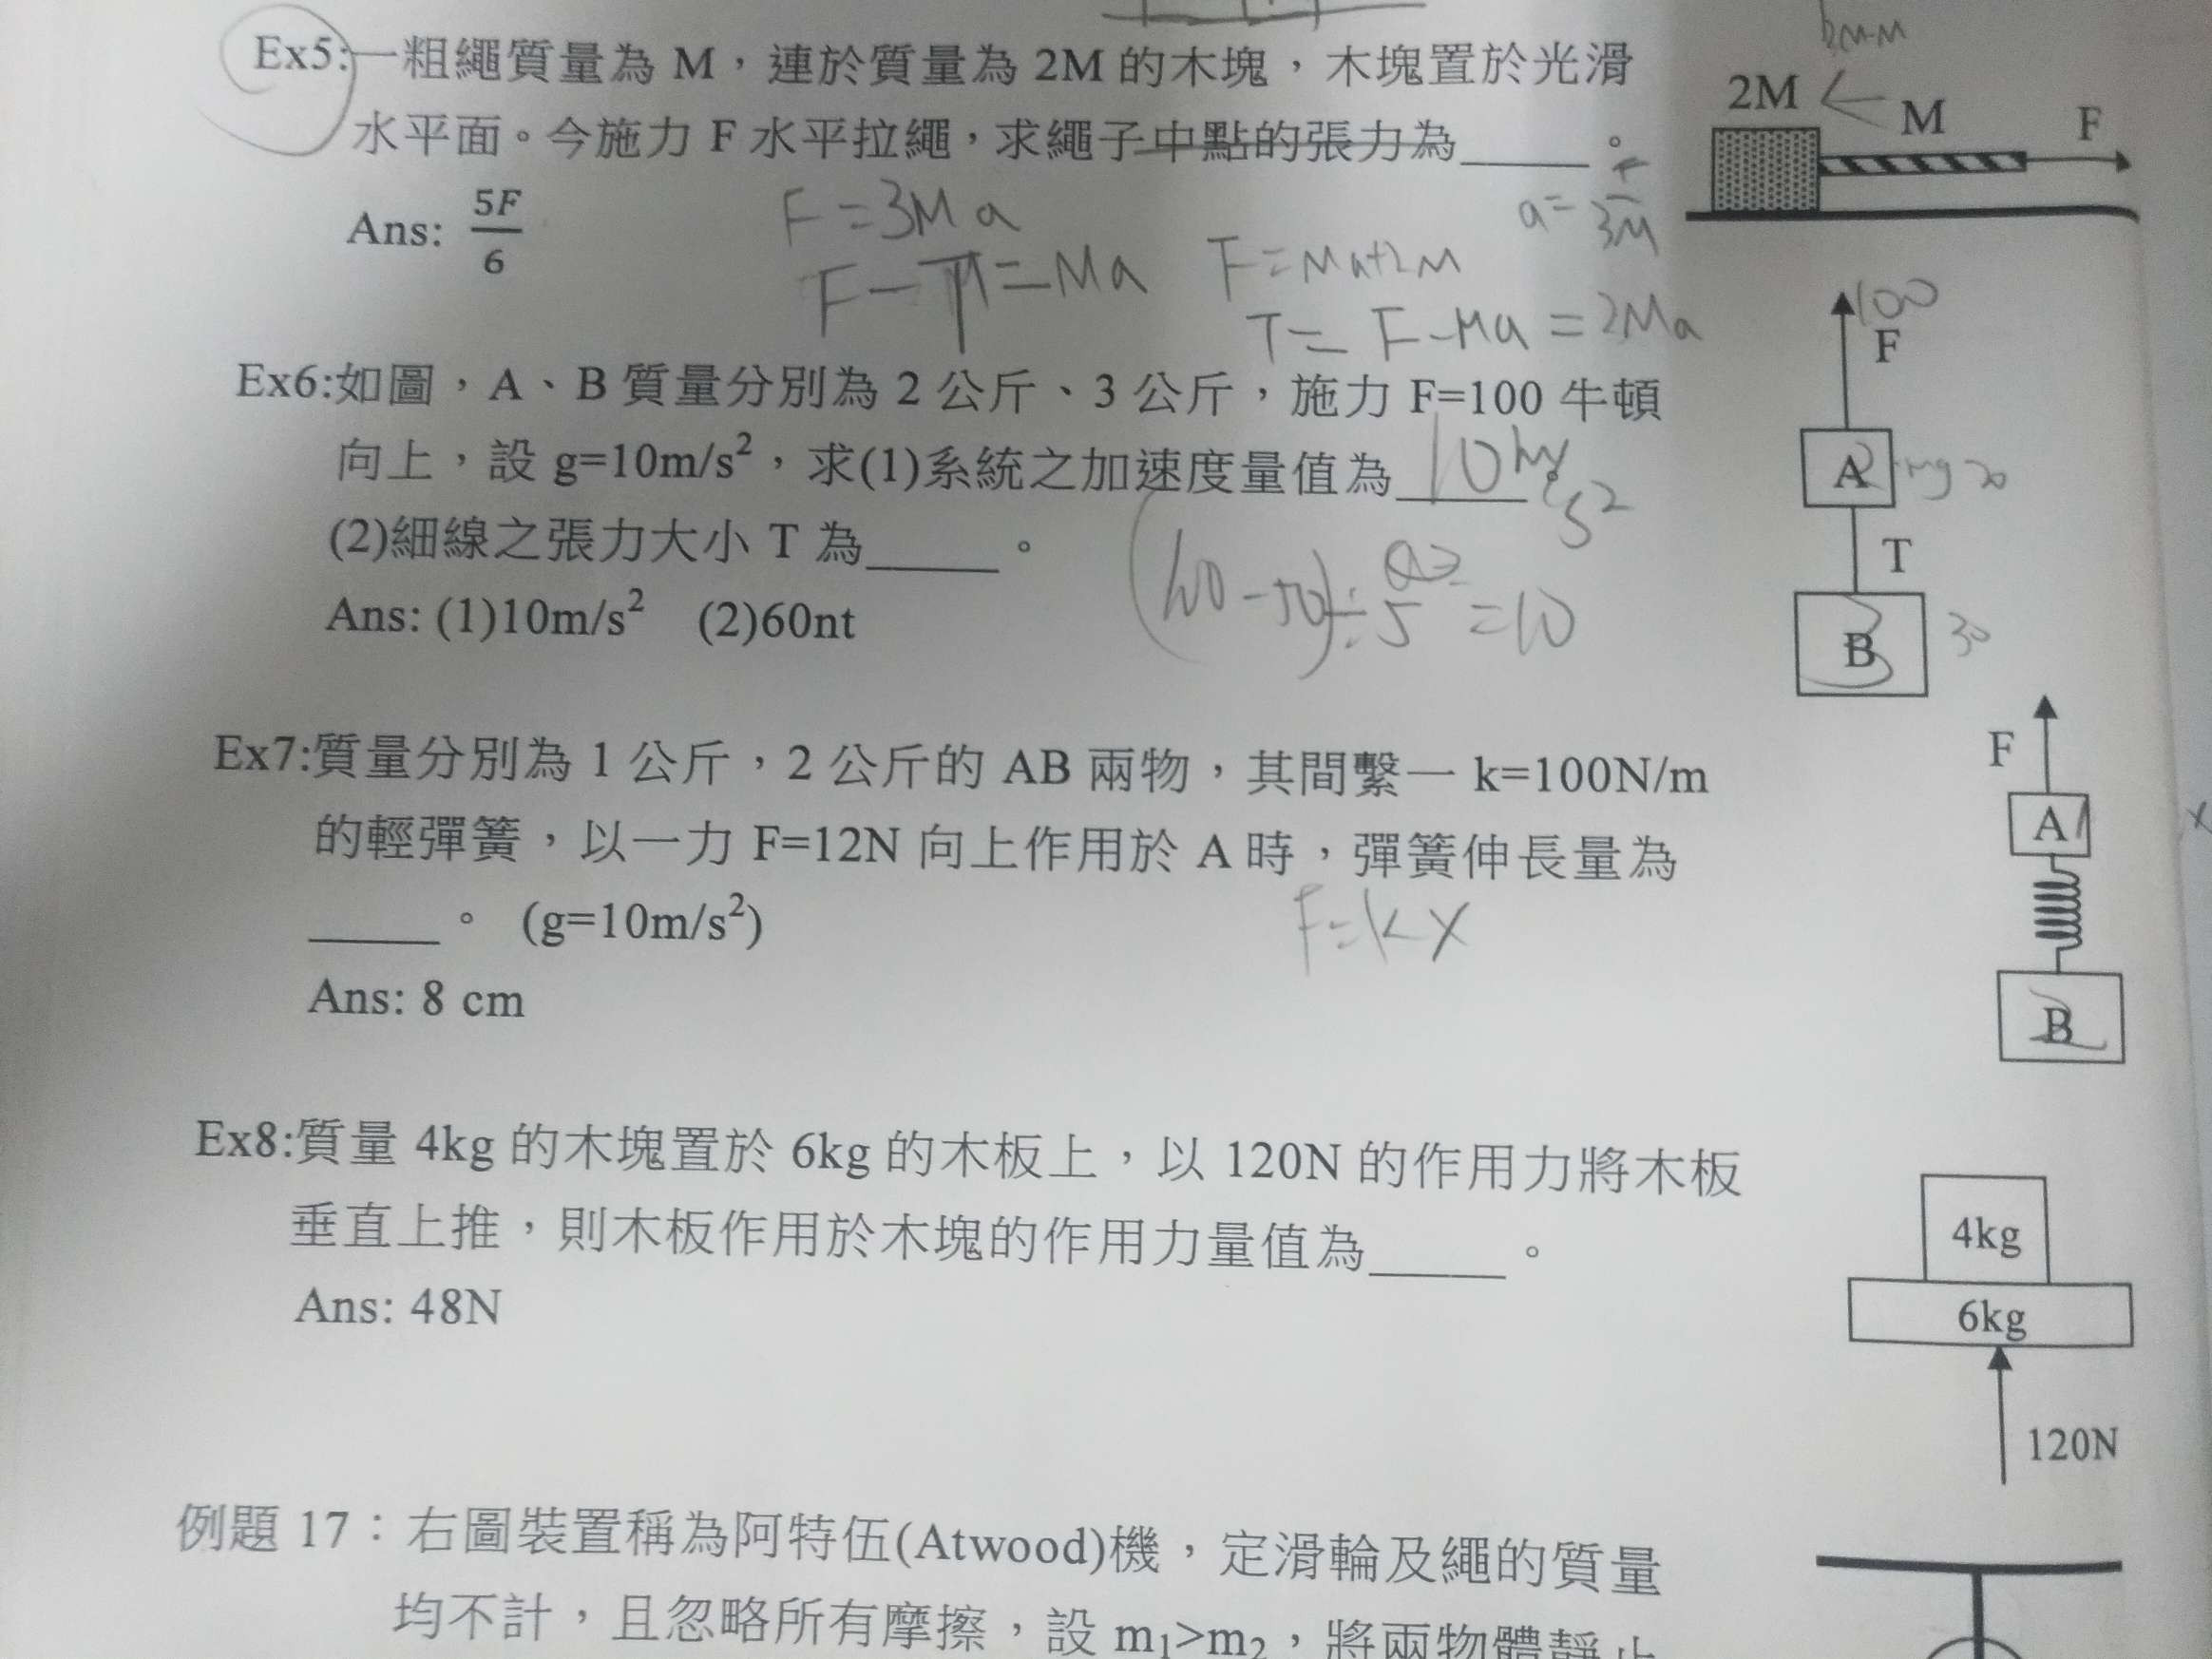 Ex5:一粗繩質量為 M，連於質量為 2M 的木塊，木塊置於光滑
水平面。今施力 F 水平拉繩，求繩子中點的張力為_____。
Ans: 5F/6
2M
M
F
F=3Ma
a=F/3M
F-T=Ma
T=F-Ma=2Ma
Ex6:如圖，A、B 質量分別為 2 公斤、3 公斤，施力 F=100 牛頓
向上，設 g=10m/s²，求(1)系統之加速度量值為_____
10m/s²
(2)細線之張力大小 T 為_____。
Ans: (1)10m/s² (2)60nt
(100-50)÷5=10
a=
100
F
A
2
mg 20
T
B
3
30
Ex7:質量分別為 1 公斤，2 公斤的 AB 兩物，其間繫一 k=100N/m
的輕彈簧，以一力 F=12N 向上作用於 A 時，彈簧伸長量為
_____。 (g=10m/s²)
F=kx
Ans: 8 cm
F
A
1
B
2
Ex8:質量 4kg 的木塊置於 6kg 的木板上，以 120N 的作用力將木板
垂直上推，則木板作用於木塊的作用力量值為_____。
Ans: 48N
4kg
6kg
120N
例題 17：右圖裝置稱為阿特伍(Atwood)機，定滑輪及繩的質量
均不計，且忽略所有摩擦，設 m₁>m₂，將兩物體靜止